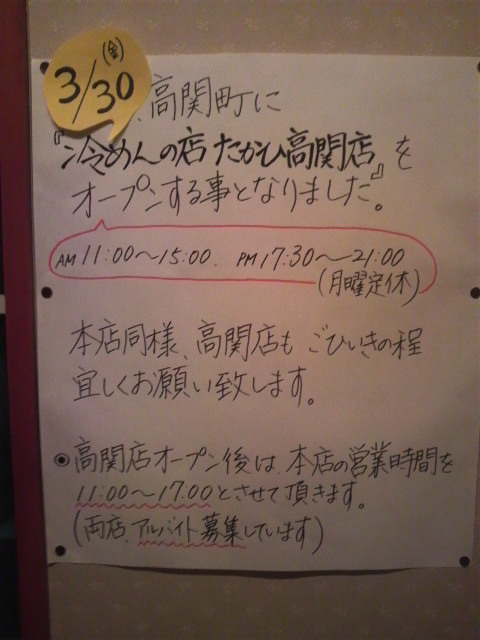 3/30
(金)
、高関町に
『冷めんの店たかひ高関店』を
オープンする事となりました。
AM 11:00～15:00. PM 17:30～21:00
(月曜定休)
本店同様、高関店もごひいきの程
宜しくお願い致します。
◉高関店オープン後は、本店の営業時間を
11:00～17:00とさせて頂きます。
(両店、アルバイト募集しています)